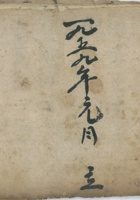 一九五九年元月 立